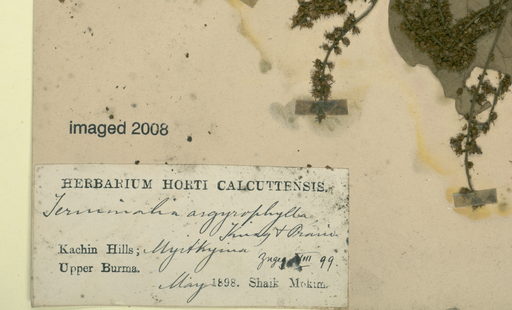 imaged 2008
HERBARIUM HORTI CALCUTTENSIS.
Terminalia argyrophylla
King & Prain
Kachin Hills; Myitkyina
Upper Burma. VIII 99
May 1898. Shaik Mokim.